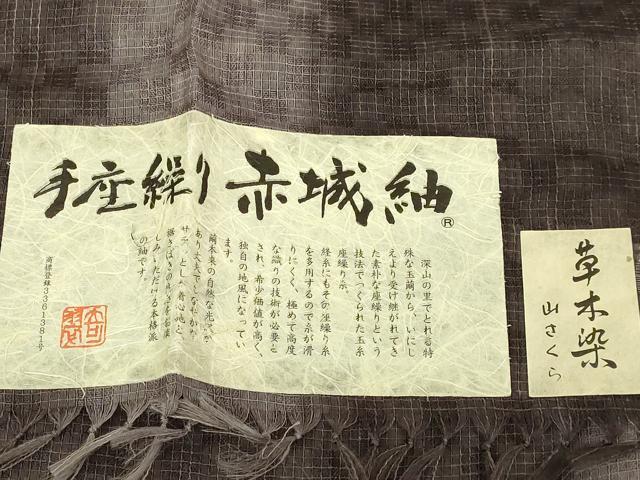 手座繰り 赤城紬®
深山の里でとれる特
殊な玉繭から、いにし
えより受け継がれてき
た素朴な座繰りという
技法でつくられた玉糸
座繰り糸。
経糸にもその座繰り糸
を多用するので糸が滑
りにくく、極めて高度
な織りの技術が必要と
され、希少価値が高く、
独自の地風になってい
ます。
繭本来の自然な光沢が
あり丈夫でしなやか、
サラッとした着心地と
の紬です。
商標登録3361381号
草木染
山さくら